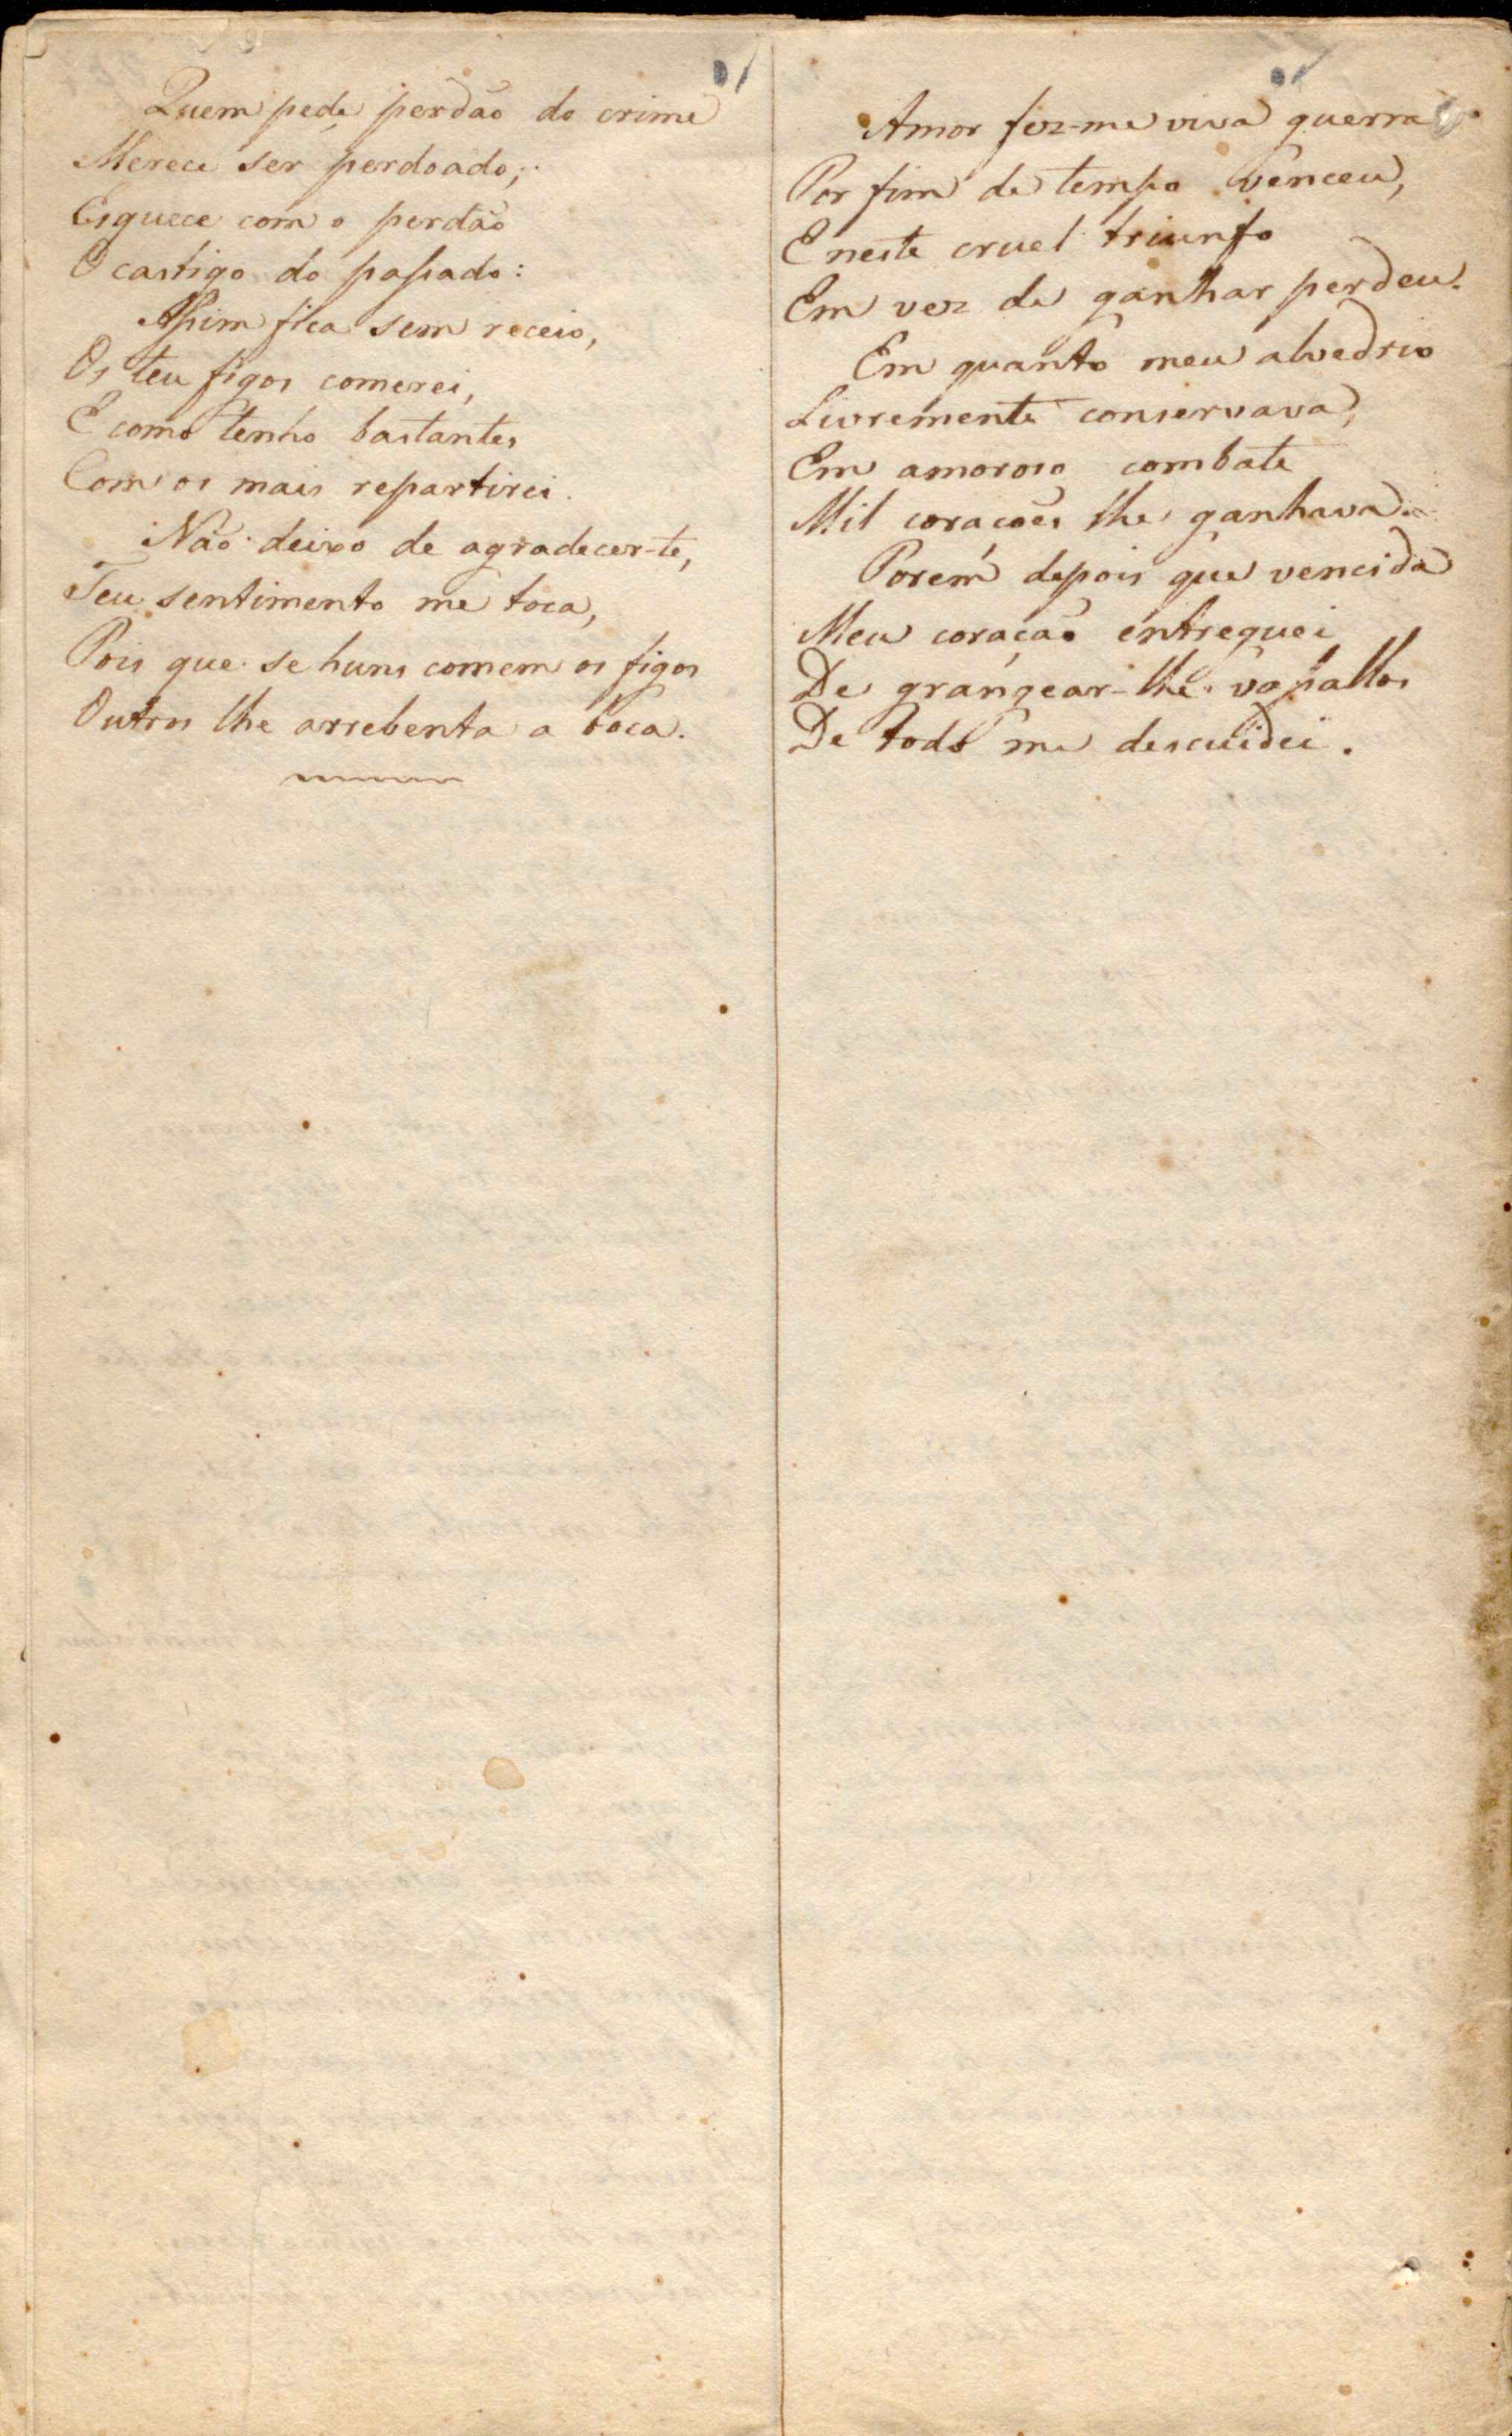 Quem pede perdão do crime
Merece ser perdoado;
Esquece com o perdão
O castigo do passado:
Assim fica sem receio,
Os teu figos comerei,
E como tenho bastantes
Com os mais repartirei.
Não deixo de agradecer-te,
Teu sentimento me toca,
Pois que se huns comem os figos
Outros lhe arrebenta a boca.
Amor fez-me viva guerra
Por fim de tempo venceu,
E neste cruel triunfo
Em vez de ganhar perdeu.
Em quanto meu alvedrio
Livremente conservava,
Em amoroso combate
Mil coracões lhe ganhava.
Porem depois que vencida
Meu coração entreguei
De grangear-lhe vassallos
De todo me descuidei.